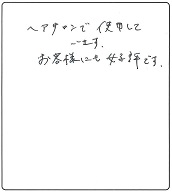 ヘアサロンで使用して
います.
お客様にも好評です.